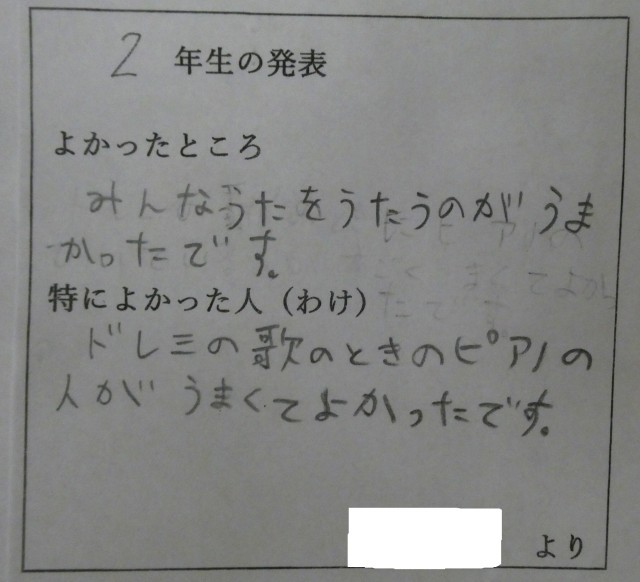 2 年生の発表
よかったところ
みんなうたをうたうのがうま
かったです。
特によかった人（わけ）
ドレミの歌のときのピアノの
人がうまくてよかったです。
より